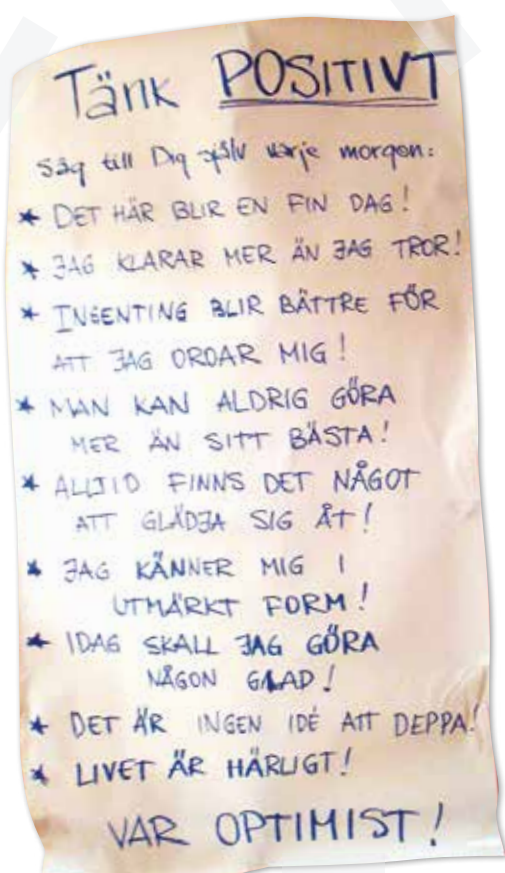 Tänk POSITIVT
Säg till Dig själv varje morgon:
* DET HÄR BLIR EN FIN DAG!
* JAG KLARAR MER ÄN JAG TROR!
* INGENTING BLIR BÄTTRE FÖR
ATT JAG OROAR MIG!
* MAN KAN ALDRIG GÖRA
MER ÄN SITT BÄSTA!
* ALLTID FINNS DET NÅGOT
ATT GLÄDJA SIG ÅT!
* JAG KÄNNER MIG I
UTMÄRKT FORM!
* IDAG SKALL JAG GÖRA
NÅGON GLAD!
* DET ÄR INGEN IDÉ ATT DEPPA!
* LIVET ÄR HÄRLIGT!
VAR OPTIMIST!